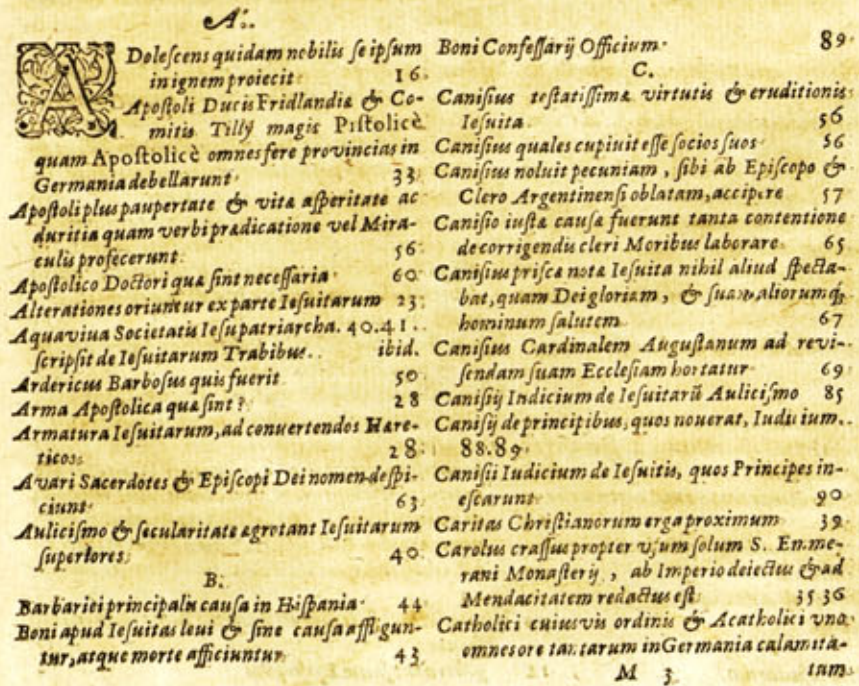 A.
ADoleſcens quidam nobilis ſe ipſum
in ignem proiecit 16.
Apoſtoli Ducis Fridlandiæ & Co-
mitis Tillÿ magis Piſtolicè
quam Apoſtolicè omnes fere provincias in
Germania debellarunt 33
Apoſtoli plus paupertate & vitæ aſperitate ac
duritia quam verbi prædicatione vel Mira-
culis profecerunt 56
Apoſtolico Doctori quæ ſint neceſſaria 60
Alterationes oriuntur ex parte Ieſuitarum 23
Aquaviua Societatis Ieſu patriarcha. 40.41.
ſcripſit de Ieſuitarum Trabibus. ibid.
Ardericus Barboſus quis fuerit 50
Arma Apoſtolica quæ ſint? 28
Armatura Ieſuitarum, ad conuertendos Hære-
ticos 28
Avari Sacerdotes & Epiſcopi Dei nomen deſpi-
ciunt 63
Auliciſmo & ſecularitate ægrotant Ieſuitarum
ſuperiores 40
B.
Barbariei principalis cauſa in Hiſpania 44
Boni apud Ieſuitas leui & ſine cauſa affligun-
tur, atque morte afficiuntur 43
Boni Confeſſarij Officium 89
C.
Caniſius teſtatiſſimæ virtutis & eruditionis
Ieſuita 56
Caniſius quales cupiuit eſſe ſocios ſuos 56
Caniſius noluit pecuniam, ſibi ab Epiſcopo &
Clero Argentinenſi oblatam, accipere 57
Caniſio iuſtæ cauſæ fuerunt tanta contentione
de corrigendis cleri Moribus laborare 65
Caniſius priſcæ notæ Ieſuita nihil aliud ſpecta-
bat, quam Dei gloriam, & ſuam aliorumq́;
hominum ſalutem 67
Caniſius Cardinalem Auguſtanum ad revi-
ſendam ſuam Eccleſiam hortatur 69
Caniſij Indicium de Ieſuitarũ Auliciſmo 85
Caniſij de principibus, quos nouerat, Iudicium.
88.89
Caniſii Iudicium de Ieſuitis, quos Principes in-
eſcarunt 90
Caritas Chriſtianorum erga proximum 39
Carolus craſſus propter vſum ſolum S. Emme-
rani Monaſterij, ab Imperio deiectus & ad
Mendacitatem redactus eſt 35 36
Catholici cuiusvis ordinis & Acatholici vno
omnes ore tantarum in Germania calamita-
M 3 tum